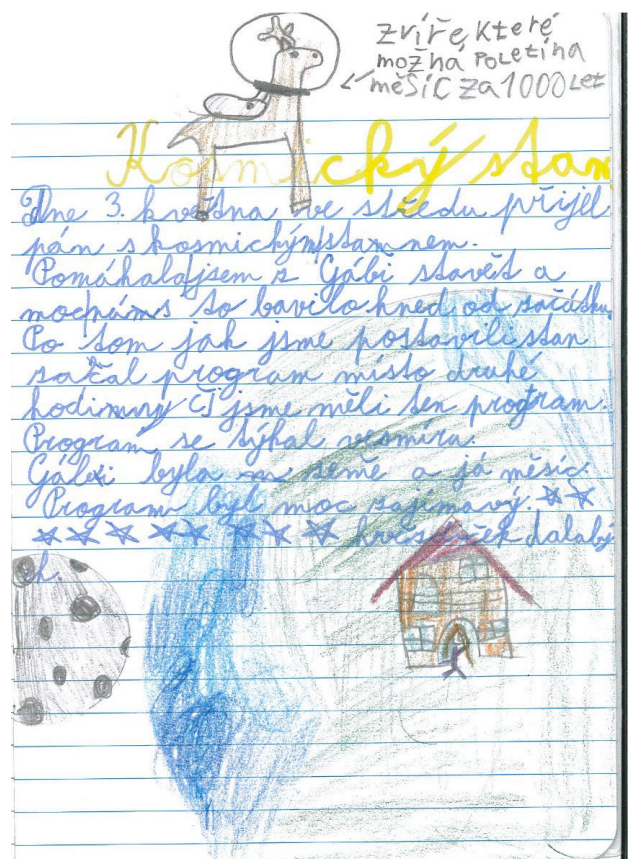 zvíře, které
možná poletí na
měsíc za 1000 let
Kosmický stan
Dne 3. května ve středu přijel
pán s kosmickým stanem.
Pomáhala jsem z Gábi stavět a
moc nám s to bavilo hned od začátku.
Po tom jak jsme postavili stan
začal program místo druhé
hodiny čj jsme měli ten program.
Program se týkal vesmíru.
Gábi byla země a já měsíc.
Program byl moc zajímavý.
hvězdiček dalaby
ch.